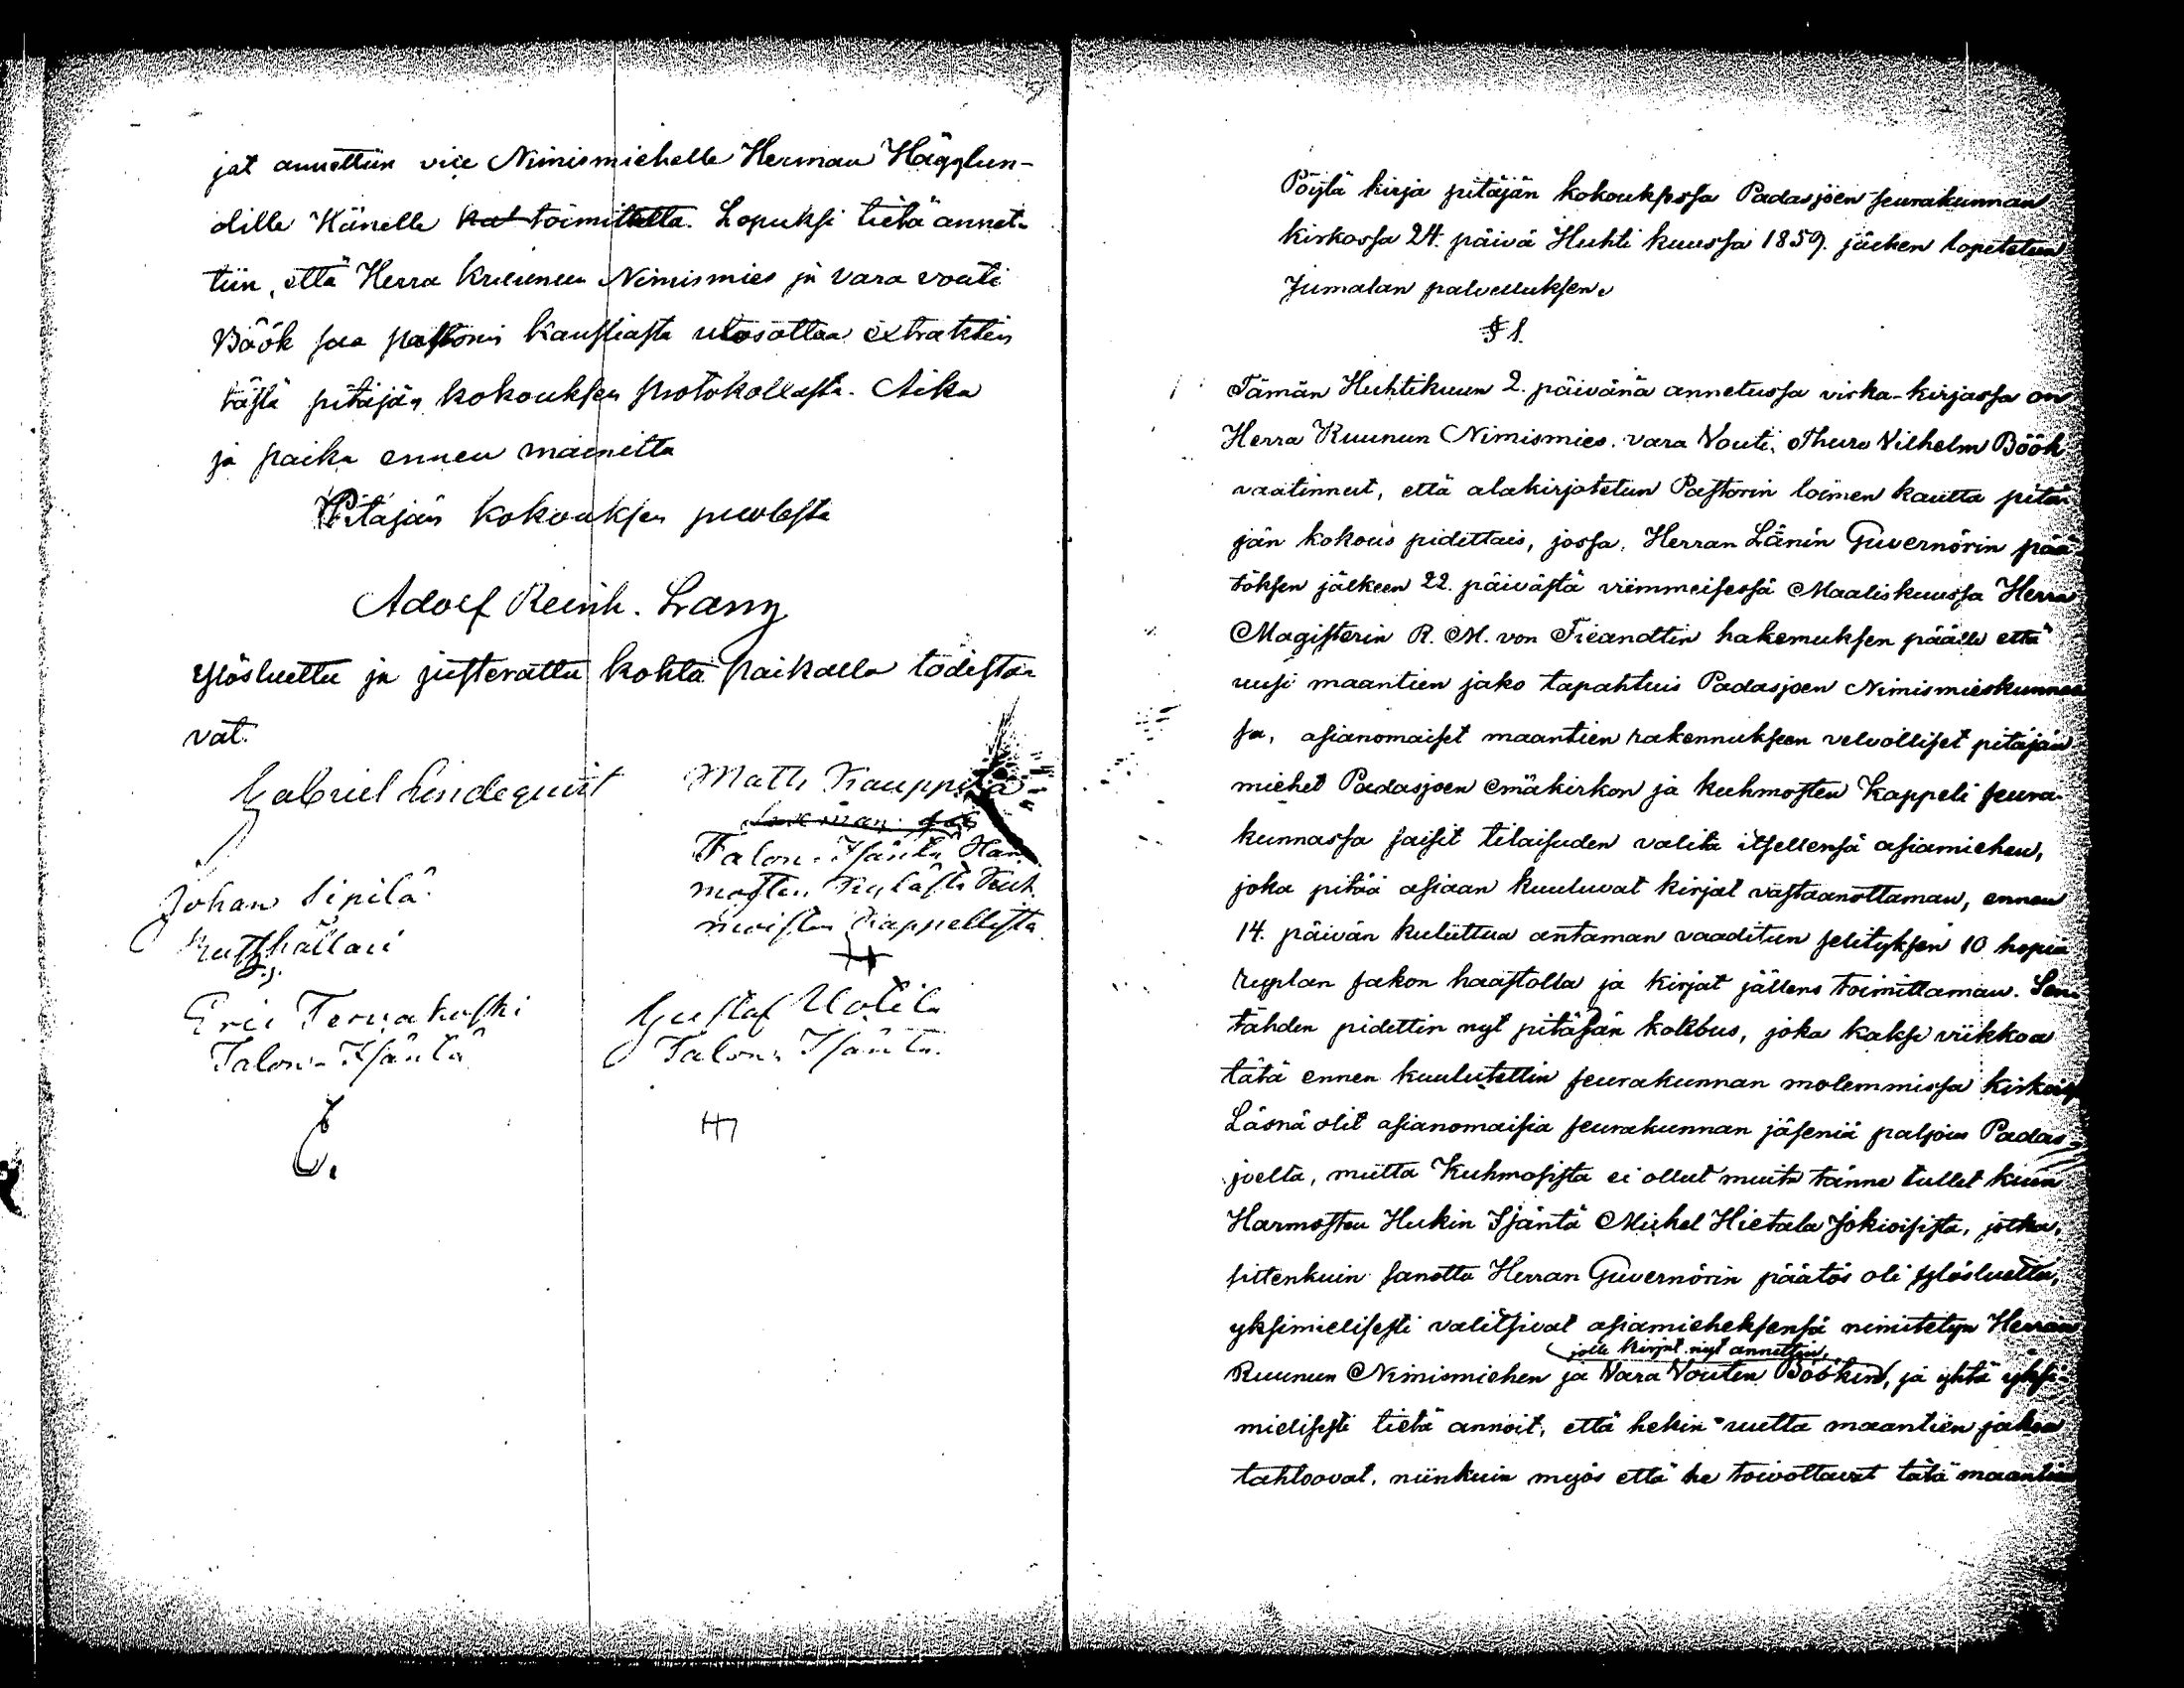 jat annettiin vice Nimismiehelle Herman Hägglun-
dille Hänelle toimitetta. Lopuksi tietä annet-
tiin, että Herra kruunun Nimismies ja vara vouti
Böök saa pastorin kansliasta ulosottaa extraktin
tästä pitäjän kokouksen protokollasta. Aika
ja paika ennen mainittu
Pitäjän kokouksen puolesta
Adolf Reinh. Lang
Ylösluettu ja justerattu kohta paikalla todista-
vat.
Gabriel Lindequist
Johan Sipilä
Rusthållari
Eric Tervakoski
Talon-Isäntä
Matts Kauppila
Talon-Isäntä Har-
mosten Kylästä Kuh-
moisten Kappelista
Gustaf Uotila
Talon-Isäntä
Pöytä kirja pitäjän kokouksessa Padasjoen seurakunnan
kirkossa 24. päivä Huhti kuussa 1859. jäken lopetetun
Jumalan palvelluksen.
§ 1.
Tämän Huhtikuun 2. päivänä annetussa virka-kirjassa on
Herra Kuunun Nimismies. vara Vouti, Thure Vilhelm Böök
vaatinnut, että alakirjotetun Pastorin loimen kautta pitä-
jän kokous pidettäis, jossa, Herran Länin Guvernörin pää-
töksen jälkeen 22. päivästä viimmeisessä Maaliskuussa Herra
Magisterin R. M. von Fieandtin hakemuksen päälle että
uusi maantien jako tapahtuis Padasjoen Nimismieskunnas-
sa, asianomaiset maantien rakennukseen velvolliset pitäjän
miehet Padasjoen emäkirkon ja kuhmosten Kappeli seura-
kunnassa saisit tilaisuden valita itsellensä asiamiehen,
joka pitää asiaan kuuluvat kirjat vastaanottaman, ennen
14. päivän kuluttua antaman vaaditun selityksen 10 hopia
ruplan sakon haastolla ja kirjat jällens toimittaman. Sen-
tähden pidettin nyt pitäjän kokous, joka kaksi viikkoa
tätä ennen kuulutettin seurakunnan molemmissa kirkois
Läsnä olit asianomaisia seurakunnan jäseniä paljon Padas-
joelta, mutta Kuhmosista ei ollut muita tänne tullet kuin
Harmosten Hukin Isäntä Michel Hietala Jokioisista, jotka,
sittenkuin sanottu Herran Guvernörin päätös oli ylösluettu,
yksimielisesti valitsivat asiamieheksensä nimitetyn Herran
jolle kirjat nyt annettin,
Ruunun Nimismiehen ja Vara Voutin Böökin, ja yhtä yksi-
mielisesti tietä annoit, että hekin uutta maantien jakoa
tahtoovat, niinkuin myös että he toivottavat tätä maantien